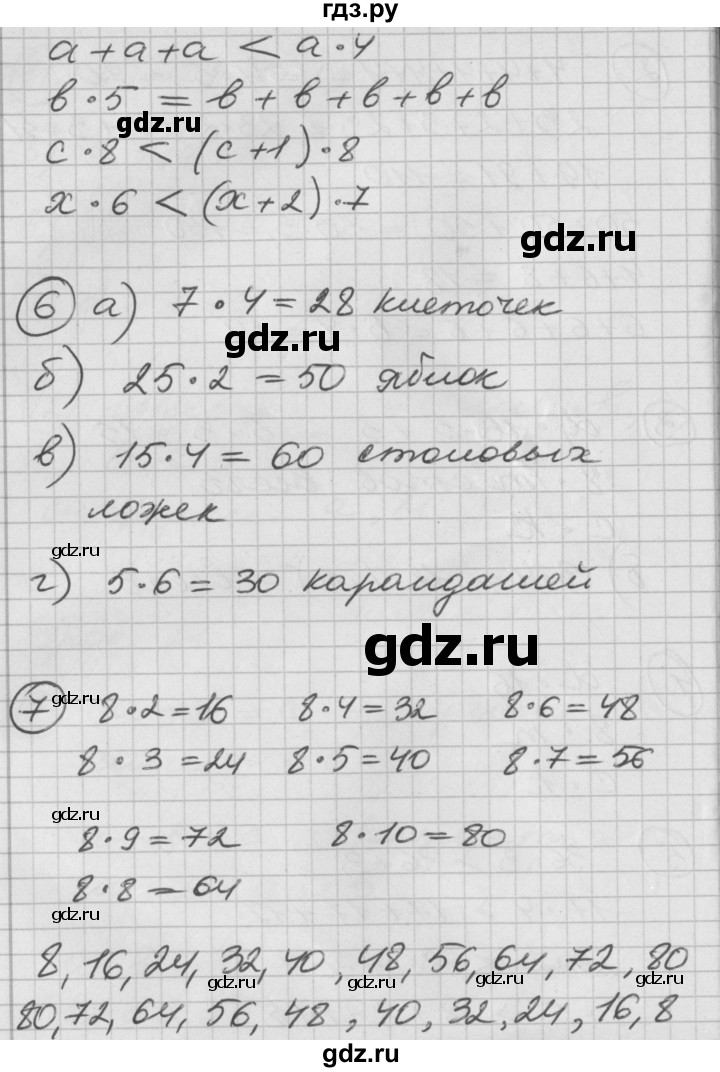 гдз.ру
a + a + a < a · 4
в · 5 = в + в + в + в + в
gdz.ru
c · 8 < (c + 1) · 8
x · 6 < (x + 2) · 7
gdz.ru
6 а) 7 · 4 = 28 клеточек
gdz.ru
б) 25 · 2 = 50 яблок
в) 15 · 4 = 60 столовых
ложек
gdz.ru
г) 5 · 6 = 30 карандашей
gdz.ru
7 gdz.ru 8 · 2 = 16 8 · 4 = 32 8 · 6 = 48
8 · 3 = 24 8 · 5 = 40 8 · 7 = 56
gdz.ru
8 · 9 = 72 8 · 10 = 80
8 · 8 = 64
gdz.ru
8, 16, 24, 32, 40, 48, 56, 64, 72, 80
gdz.ru gdz.ru gdz.ru gdz.ru
80, 72, 64, 56, 48, 40, 32, 24, 16, 8
gdz.ru